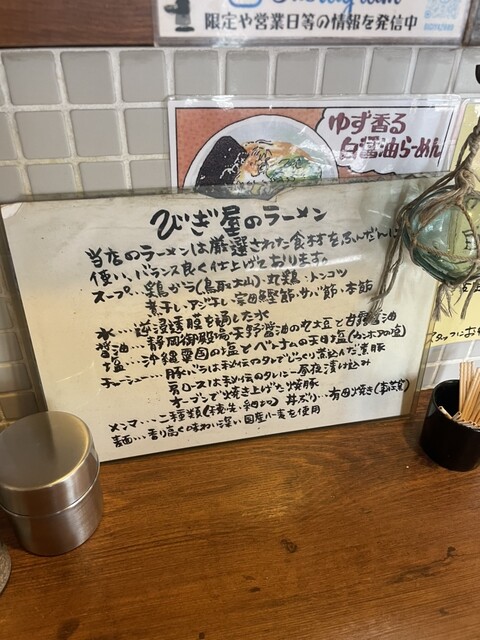 限定や営業日等の情報を発信中
ゆず香る
白醤油らーめん
びぎ屋のラーメン
当店のラーメンは厳選された食材をふんだんに
使い、バランス良く仕上げております。
スープ…鶏ガラ(鳥取大山)・丸鶏・トンコツ
煮干し・アジ干し・宗田鰹節・サバ節・本節
水…逆浸透膜を通した水
醤油…静岡御殿場天野醤油の丸大豆と甘露醤油
塩…沖縄粟国の塩とベトナムの天日塩(カンホアの塩)
チャーシュー…豚バラは秘伝のタレでじっくり煮込んだ煮豚
肩ロースは秘伝のタレに一昼夜漬け込み
オーブンで焼き上げた焼豚
メンマ…二種類(穂先・細切り) 丼ぶり…有田焼き
麺…香り高く味わい深い国産小麦を使用